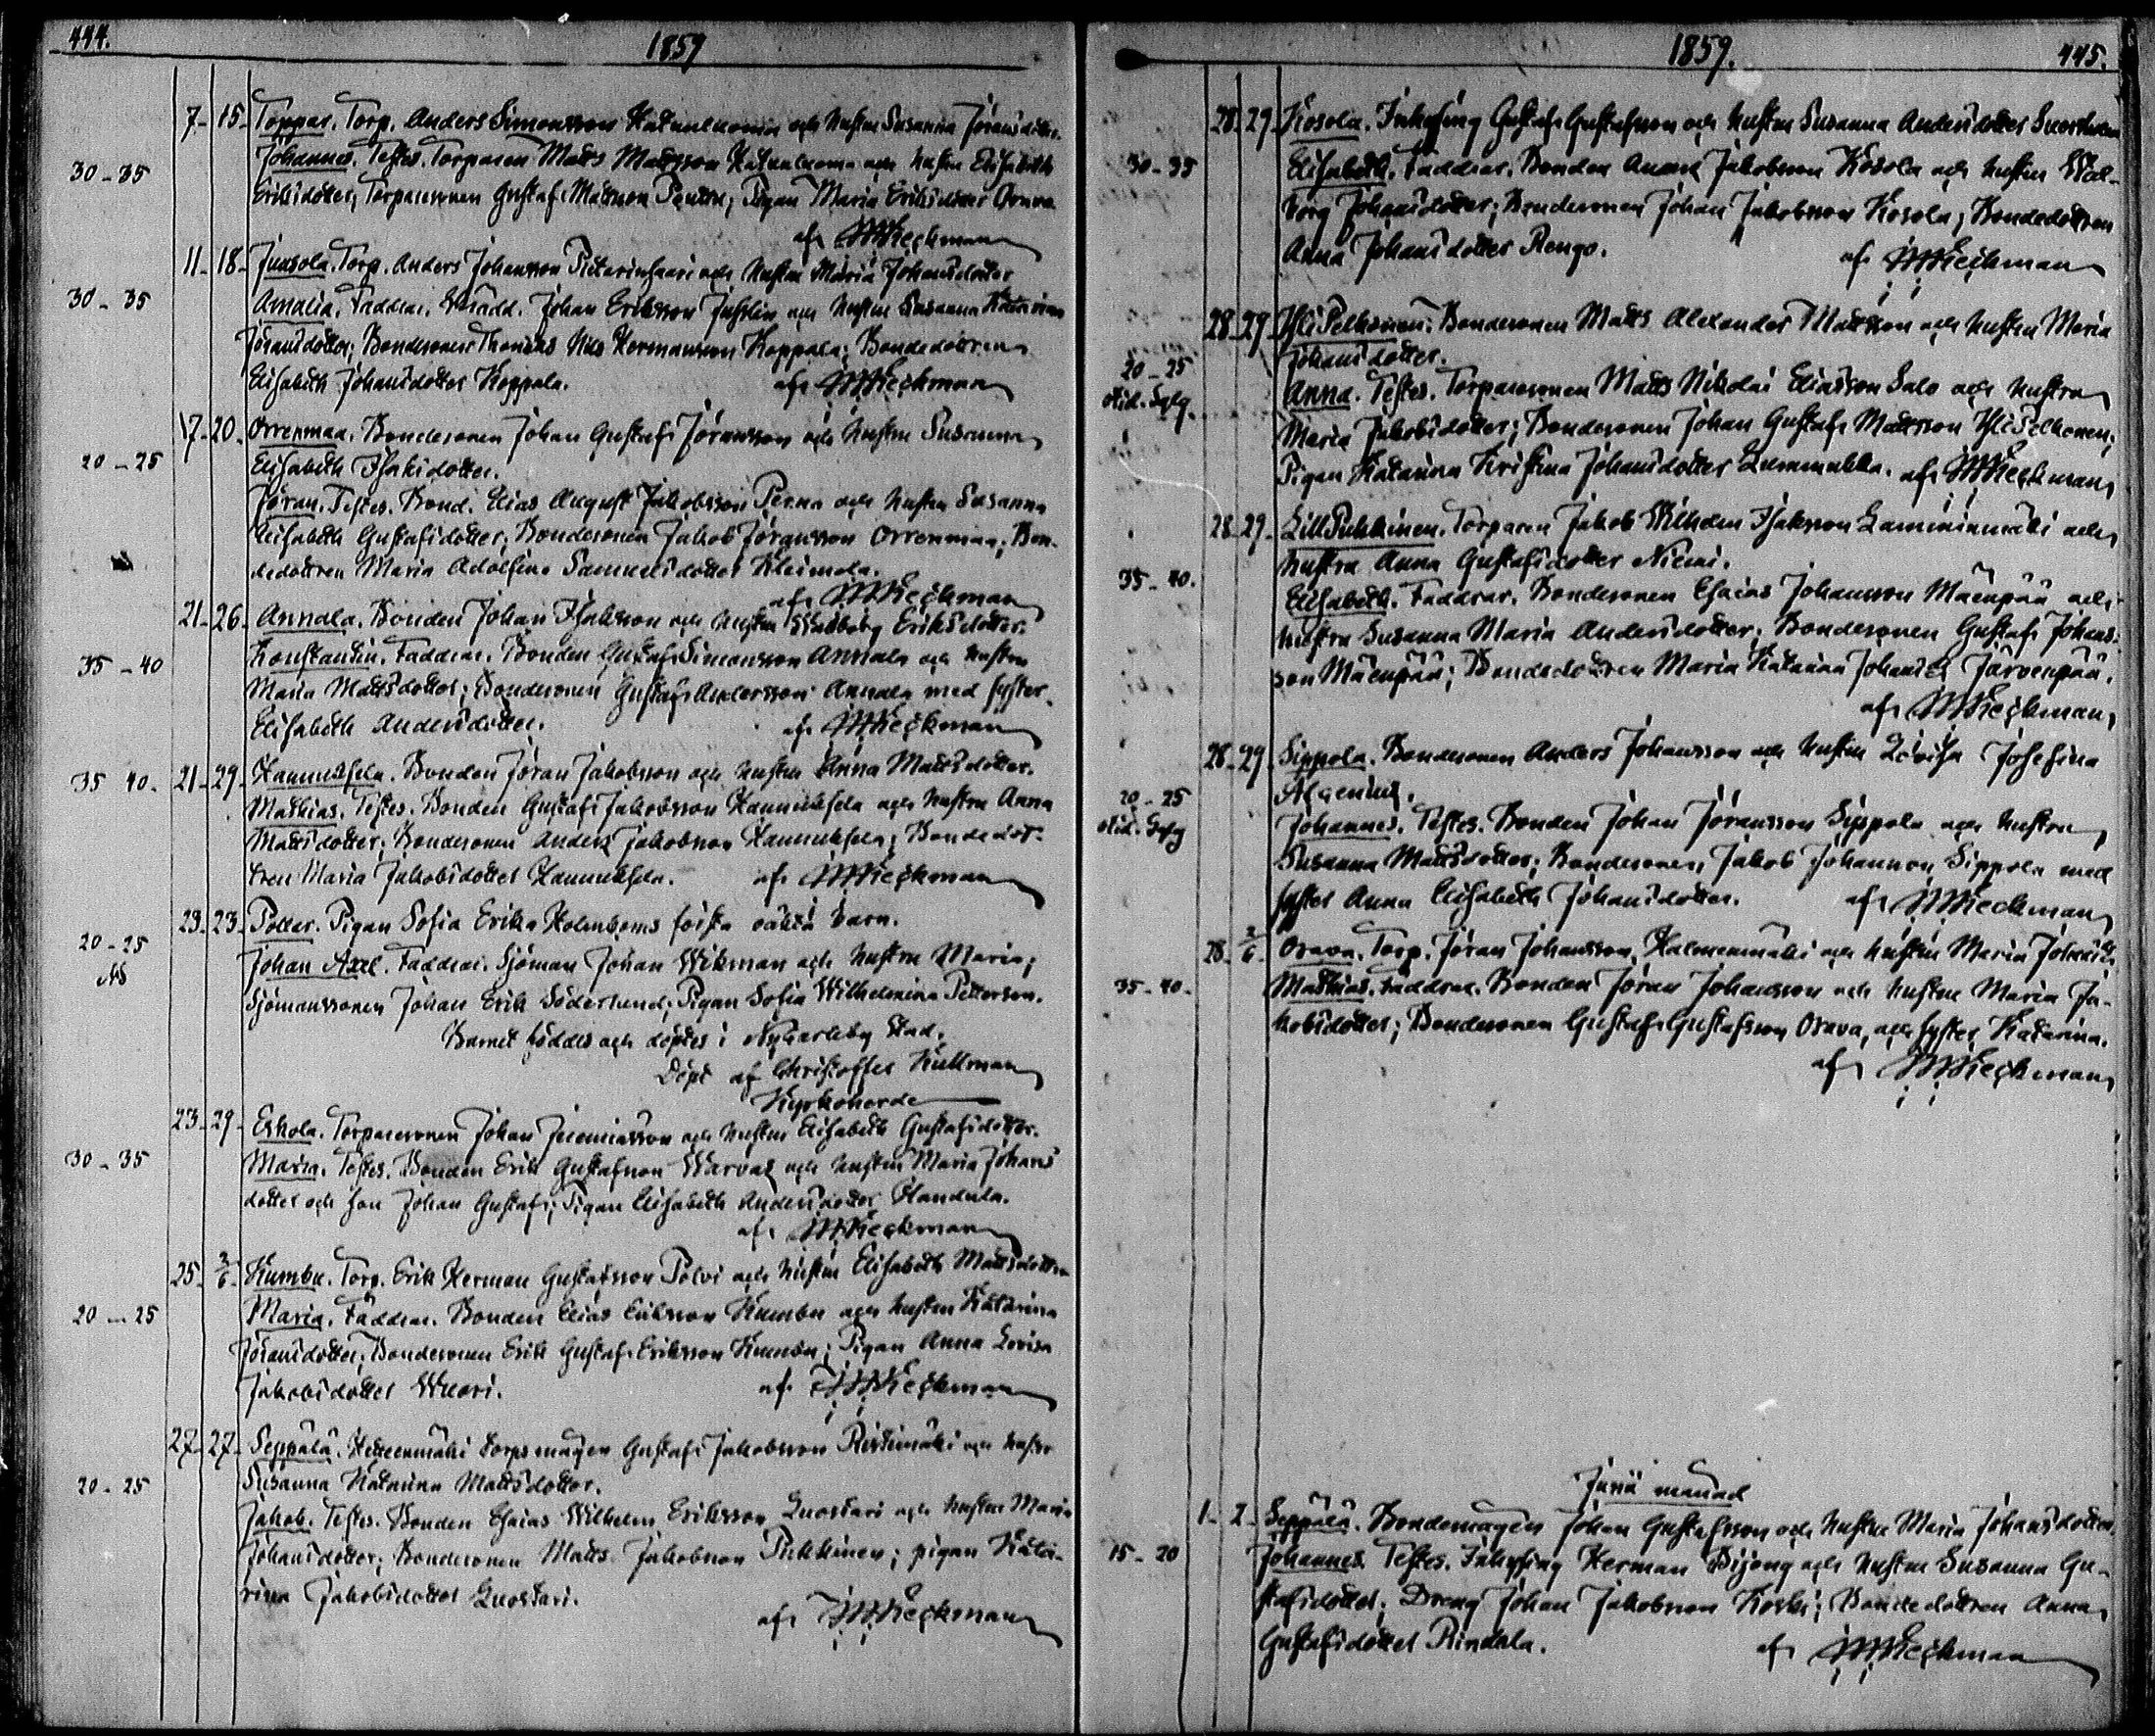 444.
1859
7-15- Toppar. Torp. Anders Simonsson och hustru Susanna Jöransdotter.
30-35
Johannes. Testes. Torparen Matts Mattsson och hustru Elisabeth
Eriksdotter; Torparesonen Gustaf Mattsson; Pigan Maria Eriksdotter Orava
af
11-18- Jungola. Torp. Anders Johansson och hustru Maria Johansdotter
30-35
Amalia. Faddrar. Johan Eriksson och hustru Susanna Katarina
Jöransdotter; Bondesonen Nils Hermansson Koppala; Bondedottren
Elisabeth Johansdotter Koppala. af
17-20- Orrenmaa. Bondesonen Johan Gustaf Jöransson och hustru Susanna
20-25
Elisabeth Isaksdotter.
Jöran. Testes. Bond. Elias August Jakobsson Perna och hustru Susanna
Elisabeth Gustafsdotter; Bondesonen Jakob Jöransson Orrenmaa; Bon-
dedottren Maria Adolfina Samuelsdotter Kleimola.
af
21-26- Annala. Bonden Johan Isaksson och hustru Walborg Eriksdotter.
35-40
Konstantin. Faddrar. Bonden Gustaf Simonsson Annala och hustru
Maria Mattsdotter; Bondesonen Gustaf Andersson Annala med syster
Elisabeth Andersdotter. af
35 40. 21-29- Hannuksela. Bonden Jöran Jakobsson och hustru Anna Mattsdotter.
Mathias. Testes. Bonden Gustaf Jakobsson Hannuksela och hustru Anna
Mattsdotter; Bondesonen Anders Jakobsson Hannuksela; Bondedot-
tren Maria Jakobsdotter Hannuksela. af
23-23- Potter. Pigan Sofia Erika Holmboms första oäkta barn.
20-25
Johan Axel. Faddrar. Sjöman Johan Wikman och hustru Maria;
Sjömanssonen Johan Erik Söderlund; Pigan Sofia Wilhelmina Petterson.
Barnet föddes och döptes i Nykarleby Stad.
Döpt af Christoffer Kullman
Kyrkoherde
23-29- Eskola. Torparesonen Johan Jeremiasson och hustru Elisabeth Gustafsdotter.
30-35
Maria. Testes. Bonden Erik Gustafsson Warvas och hustru Maria Johans
dotter och son Johan Gustaf; Pigan Elisabeth Andersdotter Handula.
af
25-2/6- Kumbu. Torp. Erik Herman Gustafsson Polvi och hustru Elisabeth Mattsdotter
20-25
Maria. Faddrar. Bonden Elias Eriksson Kumbu och hustru Katarina
Jöransdotter; Bondesonen Erik Gustaf Eriksson Kumbu; Pigan Anna Lovisa
Jakobsdotter Wuori. af
27-27- Seppälä. torpsmågen Gustaf Jakobsson Ristimäki och hustru
20-25
Susanna Katarina Mattsdotter.
Jakob. Testes. Bonden Esaias Wilhelm Eriksson Luostari och hustru Maria
Johansdotter; Bondesonen Matts Jakobsson Puhkinen; pigan Kata-
rina Jakobsdotter Luostari.
af
1859.
445.
28-29- Kosola. Inhysing Gustaf Gustafsson och hustru Susanna Andersdotter
30-35
Elisabeth. Faddrar. Bonden Anders Jakobsson Kosola och hustru Wal-
borg Johansdotter; Bondesonen Johan Jakobsson Kosola; Bondedottren
Anna Johansdotter Rengo. af
28-29- Bondesonen Matts Alexander Mattsson och hustru Maria
Johansdotter.
20-25
Anna. Testes. Torparesonen Matts Nikolai Eliasson Salo och hustru
Maria Jakobsdotter; Bondesonen Johan Gustaf Mattsson
Pigan Katarina Kristina Johansdotter af
28-29- LillPuhkinen. Torparen Jakob Wilhelm Isaksson och
hustru Anna Gustafsdotter Niemi.
35-40.
Elisabeth. Faddrar. Bondesonen Esaias Johansson Mäenpää och
hustru Susanna Maria Andersdotter; Bondesonen Gustaf Johans-
son Mäenpää; Bondedottren Maria Katarina Johansd Järvenpää.
af
28-29 Sippola. Bondesonen Anders Johansson och hustru Lovisa Josefina
20-25
Johannes. Testes. Bonden Johan Jöransson Sippola och hustru
Susanna Mattsdotter; Bondesonen Jakob Johansson Sippola med
syster Anna Elisabeth Johansdotter. af
28-2/6- Orava. Torp. Jöran Johansson, och hustru Maria
35-40-
Mathias. Faddrar. Bonden Jöran Johansson och hustru Maria Ja-
kobsdotter; Bondesonen Gustaf Gustafsson Orava, och syster Katarina.
af
Junii månad
1-2- Seppälä. Bondemågen Johan Gustafsson och hustru Maria Johansdotter.
15-20
Johannes. Testes. Inhysing Herman och hustru Susanna Gu-
stafsdotter; Dreng Johan Jakobsson Koski; Bondedottren Anna
Gustafsdotter Rindala. af